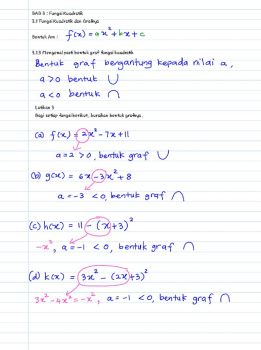 BAB 3 : Fungsi Kuadratik
3.1 Fungsi Kuadratik dan Grafnya
Bentuk Am : f(x) = ax² + bx + c
3.1.3 Mengenal pasti bentuk graf fungsi kuadratik
Bentuk graf bergantung kepada nilai a,
a > 0 bentuk ∪
a < 0 bentuk ∩
Latihan 3
Bagi setiap fungsi berikut, huraikan bentuk grafnya.
(a) f(x) = 2x² - 7x + 11
a = 2 > 0, bentuk graf ∪
(b) g(x) = 6x - 3x² + 8
a = -3 < 0, bentuk graf ∩
(c) h(x) = 11 - (x + 3)²
-x², a = -1 < 0, bentuk graf ∩
(d) k(x) = 3x² - (2x + 3)²
3x² - 4x² = -x², a = -1 < 0, bentuk graf ∩